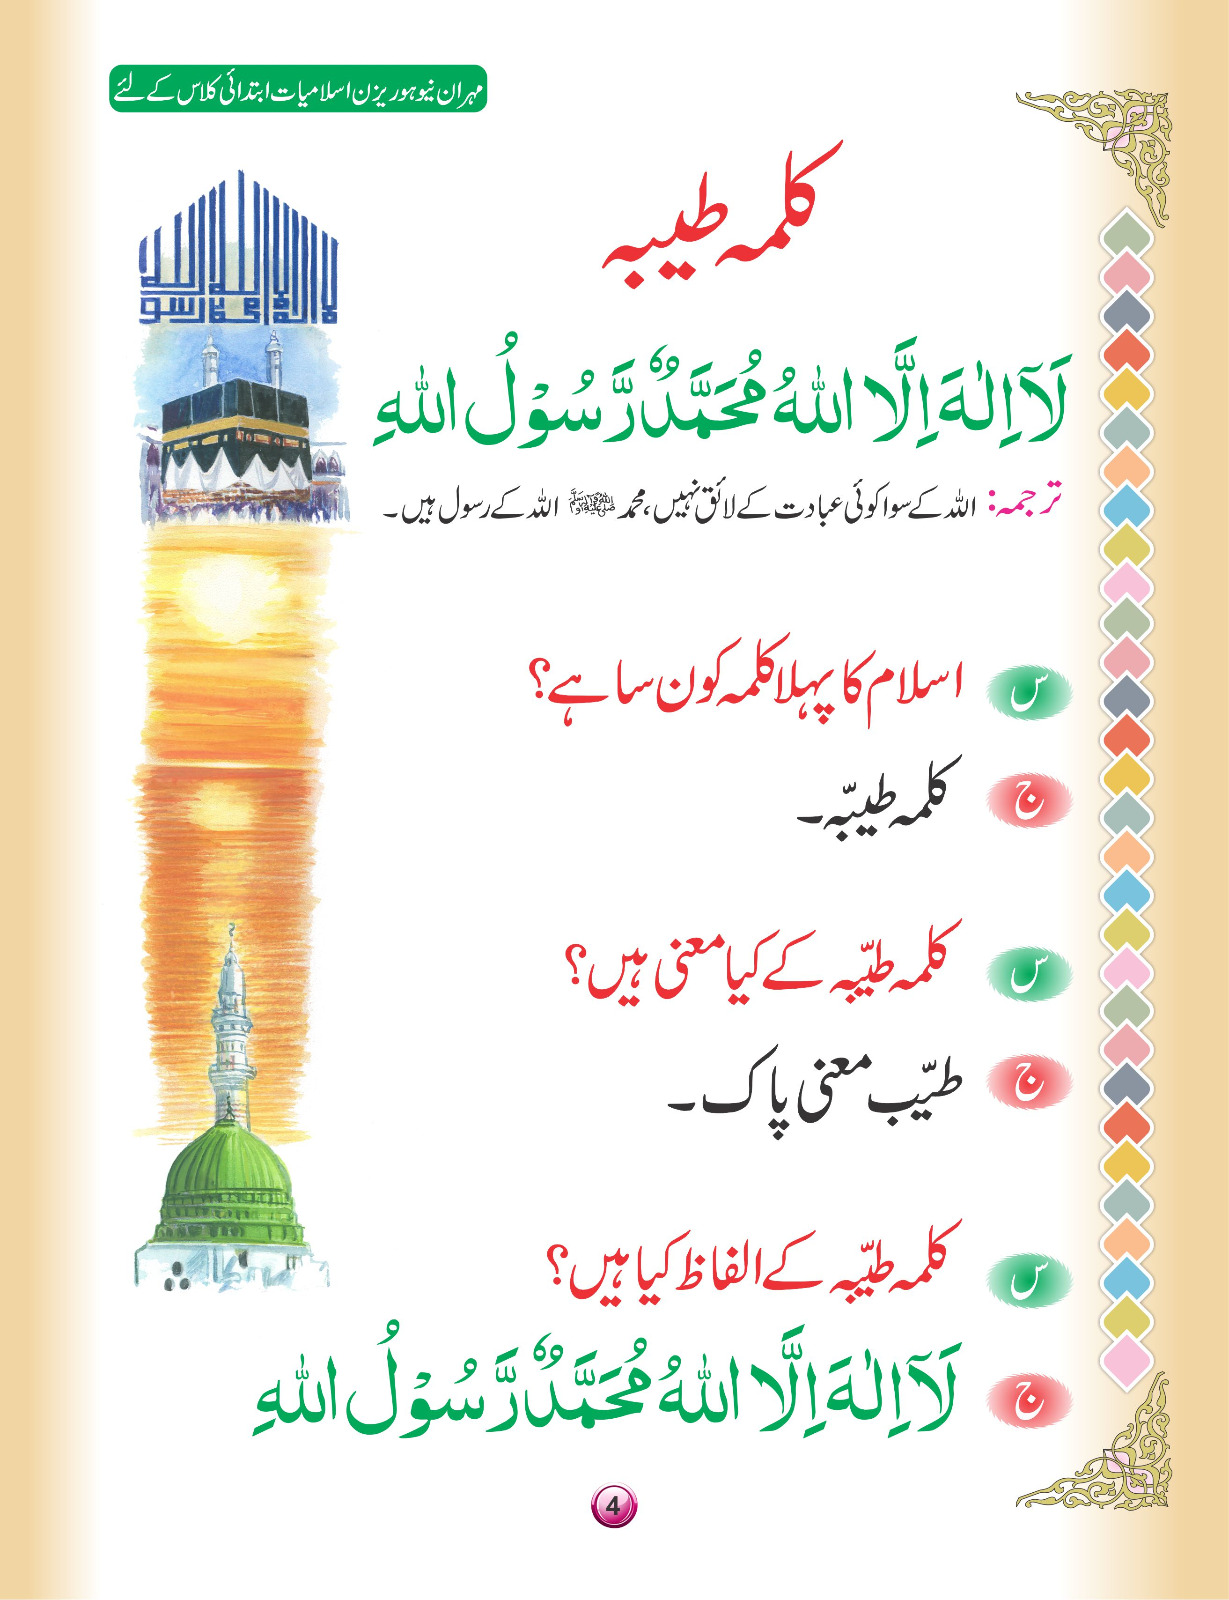 مہران نیو ہوریزن اسلامیات ابتدائی کلاس کے لئے
کلمہ طیبہ
لَآ اِلٰهَ اِلَّا اللهُ مُحَمَّدٌ رَّسُوْلُ اللهِ
ترجمہ: اللہ کے سوا کوئی عبادت کے لائق نہیں، محمد ﷺ اللہ کے رسول ہیں۔
س اسلام کا پہلا کلمہ کون سا ہے؟
ج کلمہ طیبّہ۔
س کلمہ طیّبہ کے کیا معنی ہیں؟
ج طیّب معنی پاک۔
س کلمہ طیّبہ کے الفاظ کیا ہیں؟
ج لَآ اِلٰهَ اِلَّا اللهُ مُحَمَّدٌ رَّسُوْلُ اللهِ
4